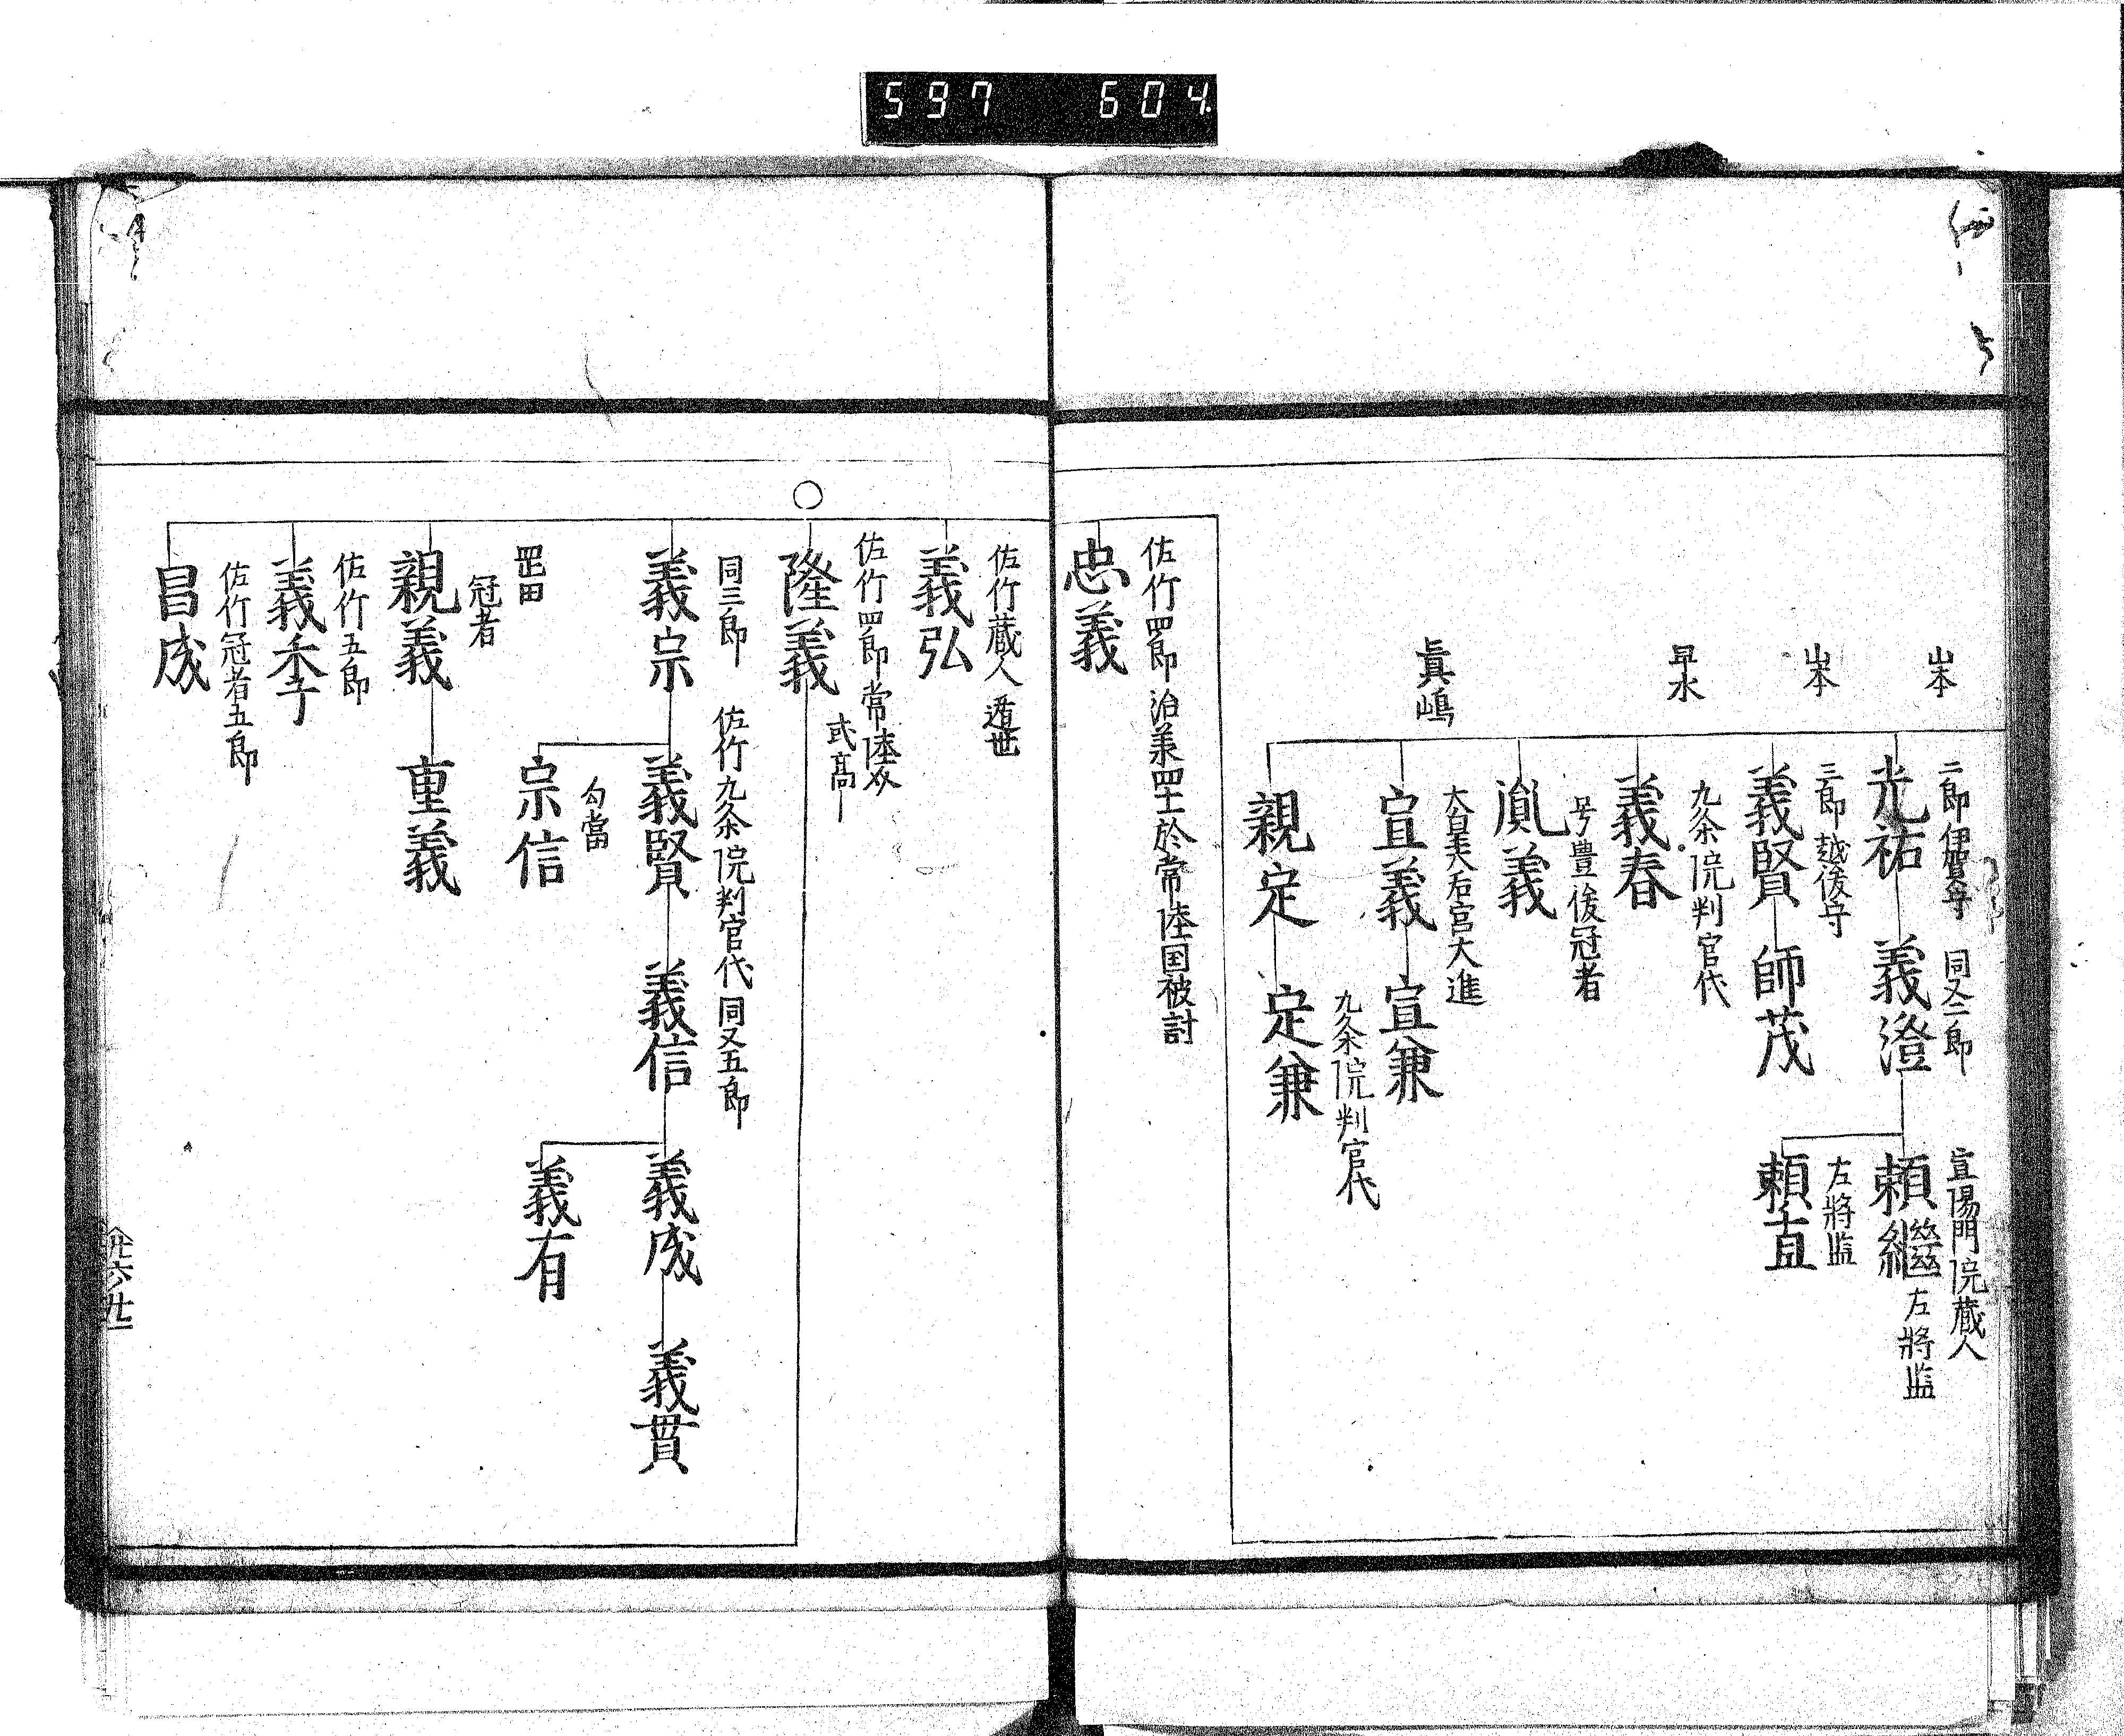 597 604
山本
二郎 伊賀守
光祐
同又二郎
義澄
宣陽門院蔵人
頼繼
左將監
左將監
頼直
山本
三郎 越後守
義賢
師茂
早水
九条院判官代
義春
号豊後冠者
胤義
眞嶋
大皇太后宮大進
宣義
宣兼
九条院判官代
親定
定兼
佐竹四郎 治美四士於常陸国被討
忠義
佐竹蔵人 遁世
義弘
○
佐竹四郎 常陸介
隆義
武高
同三郎
義宗
佐竹九条院判官代
義賢
同又五郎
義信
義成
義貫
義有
勾當
宗信
罡田
冠者
親義
重義
佐竹五郎
義季
佐竹冠者五郎
昌成
六